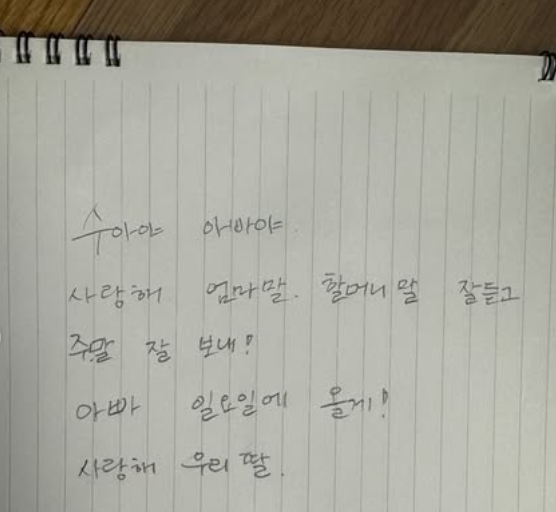 수아야 아빠야.
사랑해 엄마말. 할머니 말 잘듣고
주말 잘 보내!
아빠 일요일에 올게!
사랑해 우리 딸.